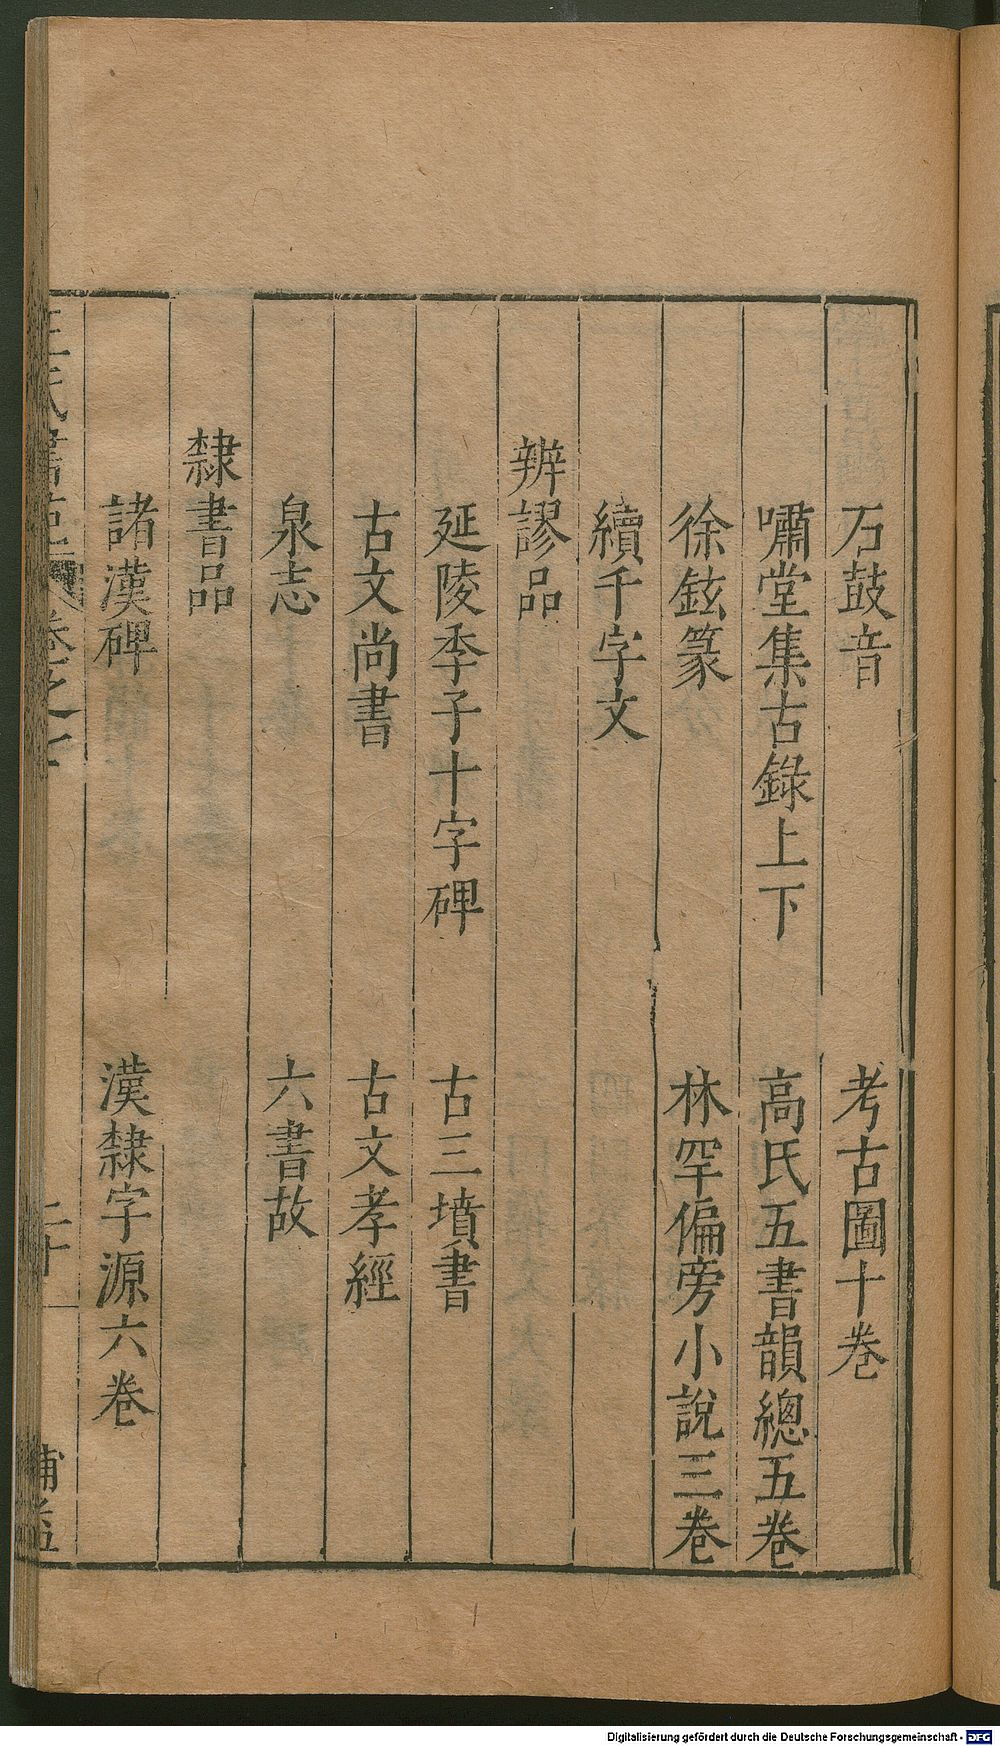 石鼓音　考古圖十卷
嘯堂集古錄上下　高氏五書韻總五卷
徐鉉篆　林罕偏旁小說三卷
續千字文
辨謬品
延陵季子十字碑　古三墳書
古文尚書　古文孝經
泉志　六書故
隸書品
諸漢碑　漢隸字源六卷
王氏書苑　卷之七　二十　補益
Digitalisierung gefördert durch die Deutsche Forschungsgemeinschaft - DFG